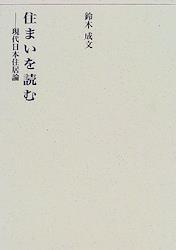 鈴木成文
住まいを読む
――現代日本住居論